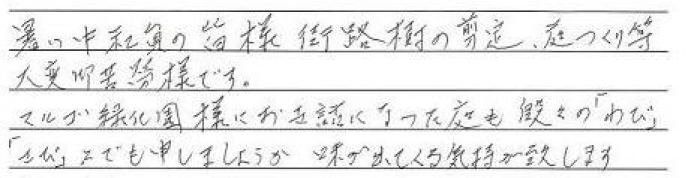 暑い中社員の皆様街路樹の剪定、庭つくり等
大変御苦労様です。
マルホ緑化園様にお世話になった庭も段々の「わび」
「さび」とでも申しましょうか 味が出てくる気持が致します